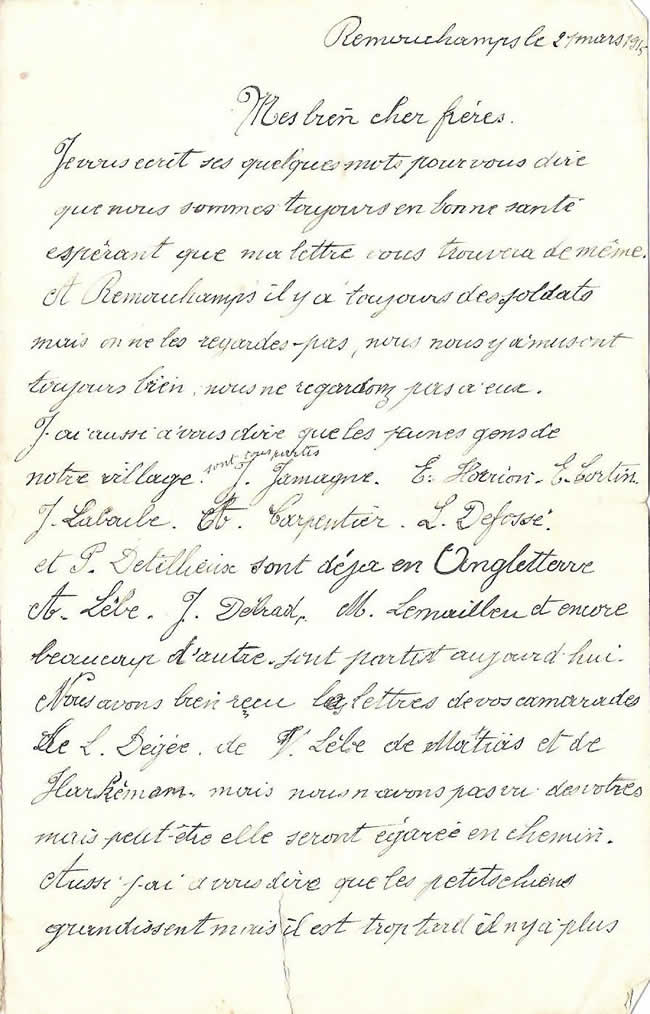 Remouchamps le 27 mars 1915
Mes bien cher fréres.
Je vous ecrit ses quelques mots pour vous dire
que nous sommes toujours en bonne santé
espérant que ma lettre vous trouvera de même.
A Remouchamps il y a toujours des soldats
mais on ne les regardes-pas, nous nous y amusont
toujours bien, nous ne regardonz pas a eux.
J'ai aussi a vous dire que les jeunes gens de
notre village. sont tous partis J. Jamagne. E. Horrion. E. Cortin.
J. Laboule. A. Carpentier. L. Defossé.
et P. Detillieux sont déja en Angletterre
A. Lébe. J. Delrad, M. Lemailleu et encore
beaucoup d'autre. sont partist aujourd'hui.
Nous avons bien reçu les lettres de vos camarades
de L. Dégée. de V. Lébe de Matias et de
Harkémam. mais nous n'avons pas vu des votres
mais peut-être elle seront égareé en chemin.
Aussi j'ai a vous dire que les petits chiens
grandissent mais il est trop tard il n'y a plus